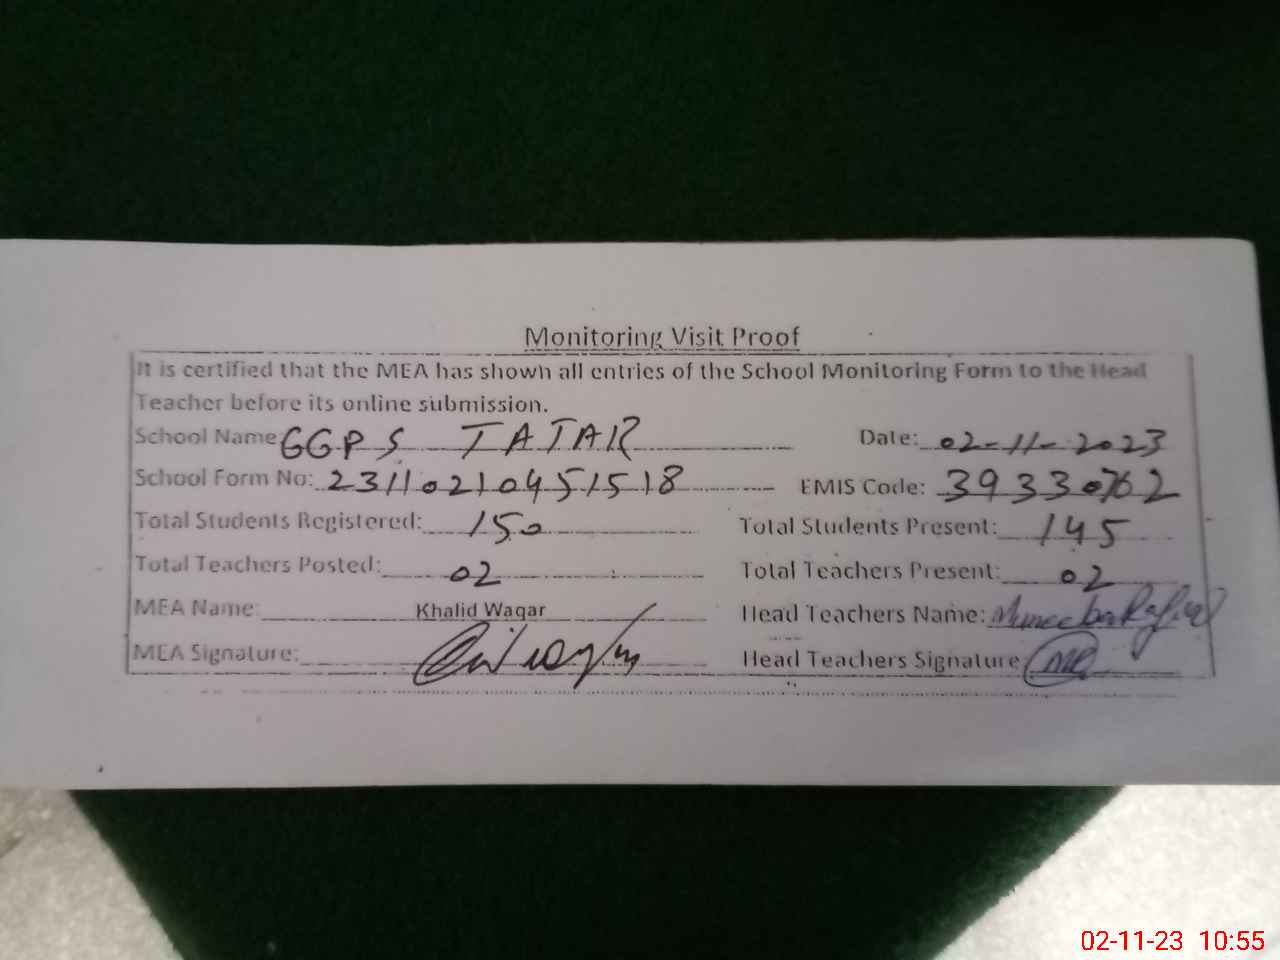 Monitoring Visit Proof
It is certified that the MEA has shown all entries of the School Monitoring Form to the Head
Teacher before its online submission.
School Name GGPS TATAR Date: 02-11-2023
School Form No: 23110210451518 EMIS Code: 39330762
Total Students Registered: 150 Total Students Present: 145
Total Teachers Posted: 02 Total Teachers Present: 02
MEA Name: Khalid Waqar Head Teachers Name:
MEA Signature: Head Teachers Signature
02-11-23 10:55